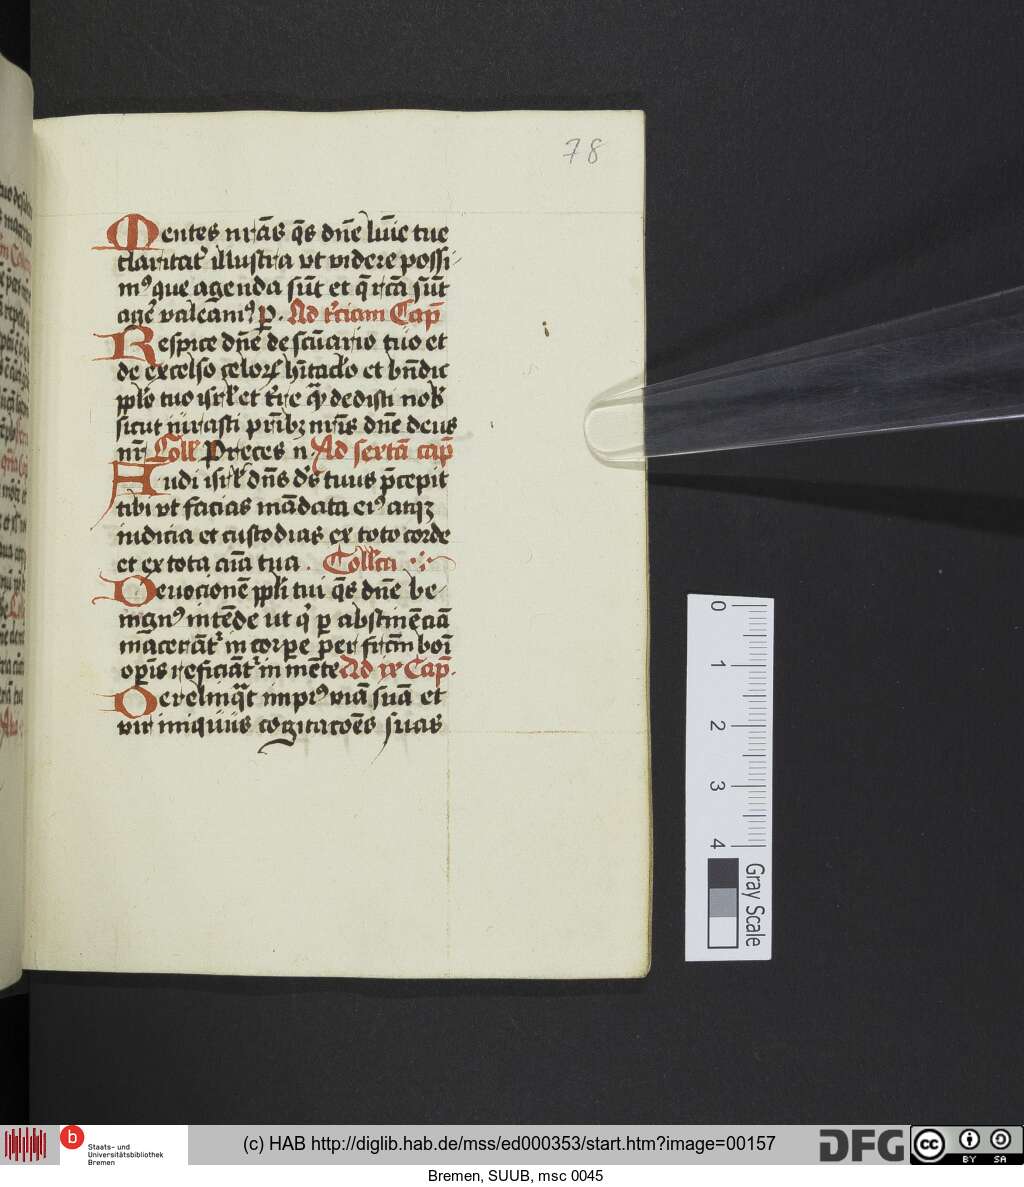 78
Mentes nr̄as q̄s dn̄e lum̄e tue
claritat᷒ illustra vt videre possi
m᷒ que agenda sūt et q̄ rc̄a sūt
age᷒ valeam᷒ p̱. Ad t᷒ciam Cap̄
Respice dn̄e de scūario tuo et
de excelso celoꝝ hītac̄lo et bn̄dic
pp̄lo tuo isrl̄ et tr̄e qꝫ dedisti nob̄
sicut iurasti pr̄ibꝫ nr̄is dn̄e deus
nr̄ Coll̄ Preces n. Ad sextā cap̄
Audi isrl̄ dn̄s ds̄ tuus p̄cepit
tibi vt facias mādata ei᷒ atqꝫ
iudicia et custodias ex toto corde
et ex tota aīa tua. Coll̄ca
Deuocionē pp̄li tui q̄s dn̄e be
nign᷒ intēde ut q̇ ꝑ abstinēciā
mācerāt᷒ in corꝑe per fr̄cm̄ boī
oꝑis reficiāt᷒ in mēte Ad ix Cap̄.
Derelinq̄t impi᷒ viā suā et
vir iniquus cogitacōes suas
0
1
2
3
4
Gray Scale
b
Staats- und
Universitätsbibliothek
Bremen
(c) HAB http://diglib.hab.de/mss/ed000353/start.htm?image=00157
DFG
cc
BY SA
Bremen, SUUB, msc 0045